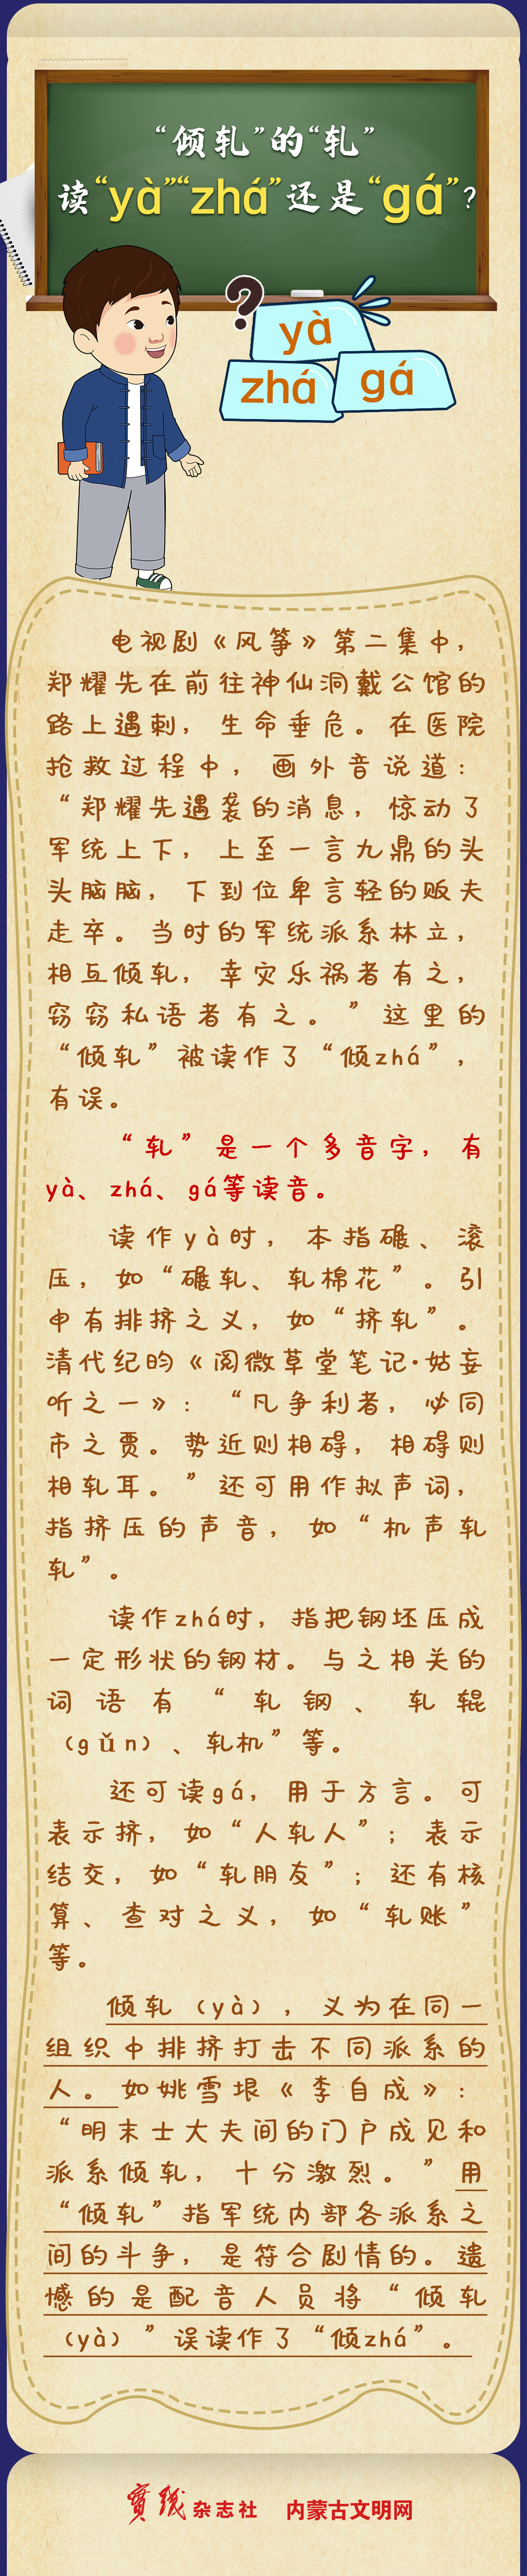 “倾轧”的“轧”
读“yà”“zhá”还是“gá”?
?
yà
zhá
gá
电视剧《风筝》第二集中，
郑耀先在前往神仙洞戴公馆的
路上遇刺，生命垂危。在医院
抢救过程中，画外音说道：
“郑耀先遇袭的消息，惊动了
军统上下，上至一言九鼎的头
头脑脑，下到位卑言轻的贩夫
走卒。当时的军统派系林立，
相互倾轧，幸灾乐祸者有之，
窃窃私语者有之。”这里的
“倾轧”被读作了“倾zhá”，
有误。
“轧”是一个多音字，有
yà、zhá、gá等读音。
读作yà时，本指碾、滚
压，如“碾轧、轧棉花”。引
申有排挤之义，如“挤轧”。
清代纪昀《阅微草堂笔记·姑妄
听之一》：“凡争利者，必同
市之贾。势近则相碍，相碍则
相轧耳。”还可用作拟声词，
指挤压的声音，如“机声轧
轧”。
读作zhá时，指把钢坯压成
一定形状的钢材。与之相关的
词语有“轧钢、轧辊
（gǔn）、轧机”等。
还可读gá，用于方言。可
表示挤，如“人轧人”；表示
结交，如“轧朋友”；还有核
算、查对之义，如“轧账”
等。
倾轧（yà），义为在同一
组织中排挤打击不同派系的
人。如姚雪垠《李自成》：
“明末士大夫间的门户成见和
派系倾轧，十分激烈。”用
“倾轧”指军统内部各派系之
间的斗争，是符合剧情的。遗
憾的是配音人员将“倾轧
（yà）”误读作了“倾zhá”。
实践杂志社 内蒙古文明网